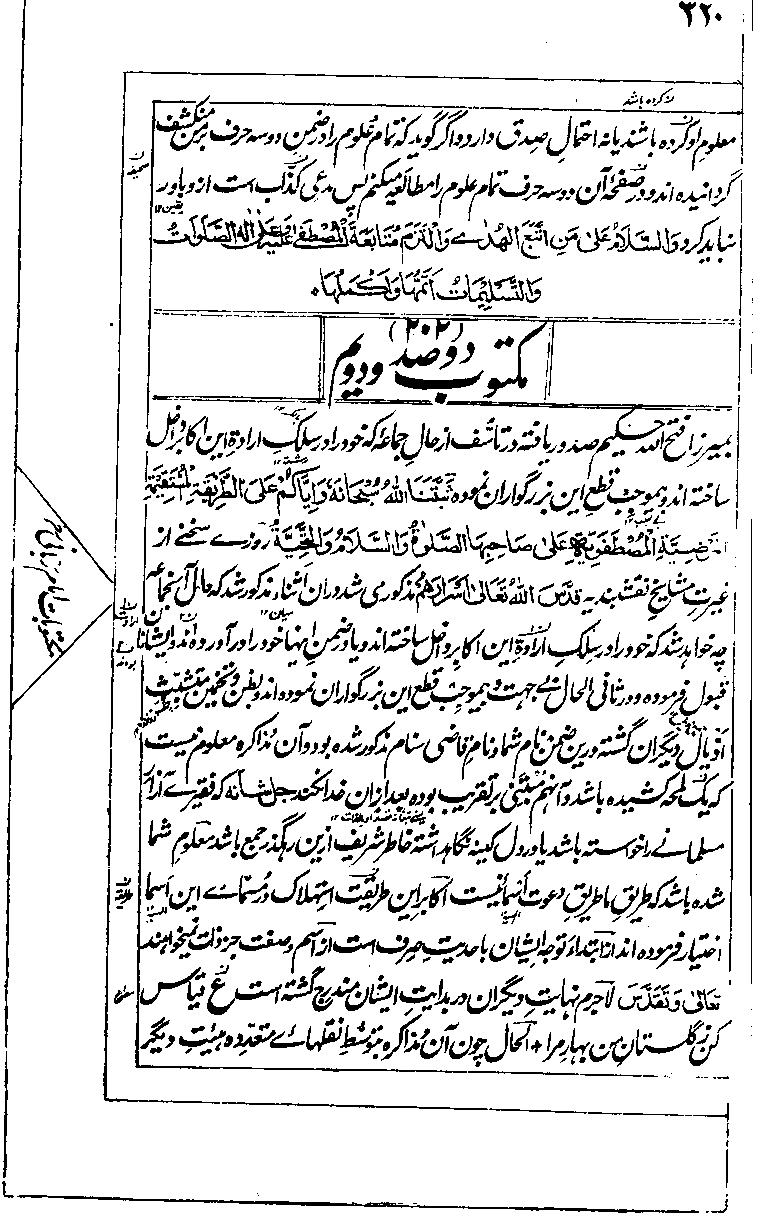 ٣٢٠
نہ کردہ باشد
معلوم او کرده باشند یا نہ احتمال صدق دارد و اگر گوید کہ تمام علوم را در ضمن دو سہ حرف بر من منکشف
گردانیده اند و در صفحۂ آن دو سہ حرف تمام علوم را مطالعہ میکنم پس مدعی کذاب است از و باور
نباید کرد وَالسَّلَامُ عَلیٰ مَنِ اتَّبَعَ الْهُدٰے وَالْتَزَمَ مُتَابَعَةَ الْمُصْطَفٰے عَلَيْهِ وَعَلیٰ اٰلِهِ الصَّلَوَاتُ
وَالتَّسْلِيْمَاتُ اَتَمُّهَا وَاَكْمَلُهَا۔
(٢٠٢)
مکتوب دو صد و دویم
بمیرزا فتح اللہ حکیم صدور یافتہ در تاسّف از حال جماعہ کہ خود را در سلک ارادۂ این اکابر داخل
ساختہ اند و بموجب قطع این بزرگواران نموده ثَبَّتَنَا اللهُ سُبْحَانَهٗ وَاِيَّاكُمْ عَلَى الطَّرِيْقَةِ الْمُسْتَقِيْمَةِ
الْمَرْضِيَّةِ الْمُصْطَفَوِيَّةِ عَلىٰ صَاحِبِهَا الصَّلٰوةُ وَالسَّلَامُ وَالتَّحِيَّةُ روزے سخنے از
غیرت مشایخ نقشبندیہ قَدَّسَ اللهُ تَعَالیٰ اَسْرَارَهُمْ مذکور می شد در ان اثناء مذکور شد کہ حال آنجماعہ
چہ خواہد شد کہ خود را در سلک ارادۂ این اکابر داخل ساختہ اند و یا در ضمن اینہا خود را در آورده اند و ایشان
قبول فرموده و در ثانی الحال بے جہت و بموجب قطع این بزرگواران نموده اند و بظن و تخمین متشبث
اذیال دیگران گشتہ درین ضمن نام شما و نام قاضی سنام مذکور شده بود و آن مذاکره معلوم نیست
کہ یک لمحہ کشیده باشد و آنہم مبتنی بر تقریب بوده بعد ازان خدا نکند جل شانہ کہ فقیرے آزار
مسلمانے را خواستہ باشد یا در دل کینہ نگاہداشتہ خاطر شریف ازین رہگذر جمع باشد معلوم شما
شده باشد کہ طریق ما طریق دعوت اسما نیست اکابر این طریقت استہلاک در مسماے این اسما
اختیار فرموده اند از ابتداء توجہ ایشان باحدیت صرف است از اسم و صفت جز ذات نمیخواہند
تعالیٰ وَتَقَدَّسَ لاجرم نہایت دیگران در بدایت ایشان مندرج گشتہ است ع قیاس
کن ز گلستان من بہار مرا + الحال چون آن مذاکره بتوسط نقلہاے متعدده ہیئت دیگر
مکتوبات امام ربانی